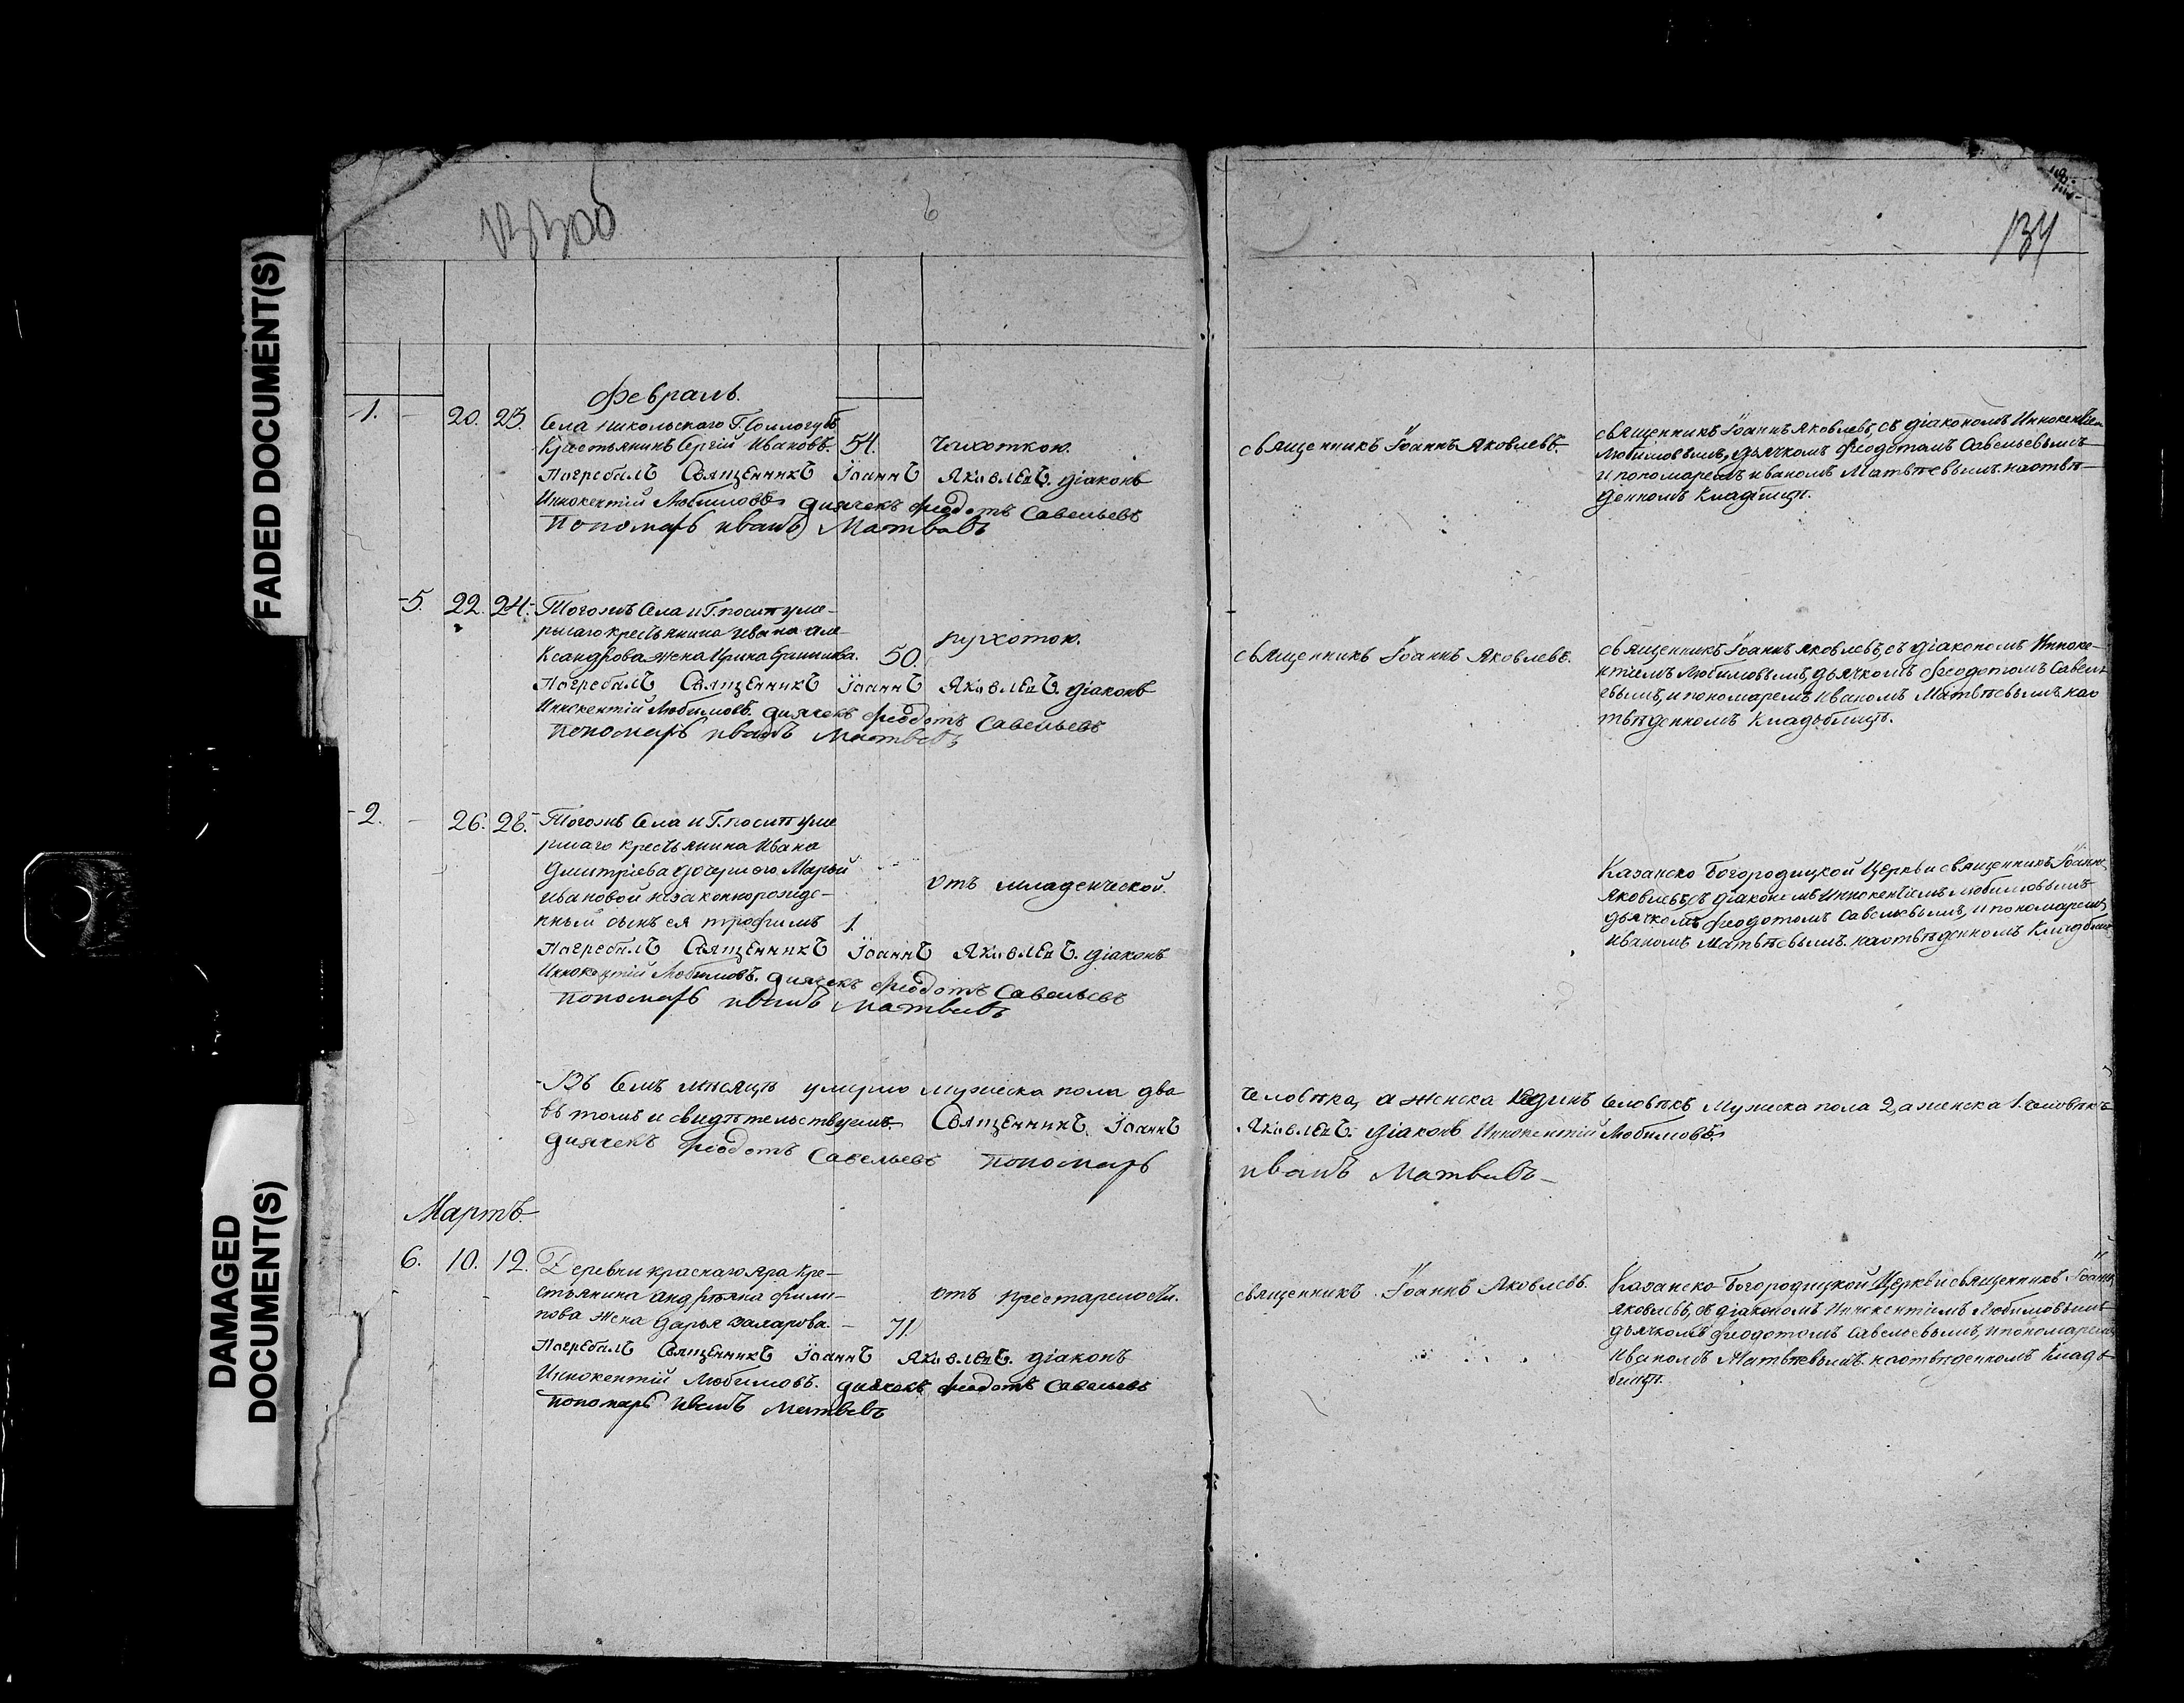 FADED DOCUMENT(S)
DAMAGED DOCUMENT(S)
6
134
Февраль.
-1. - 20. 23. Села Никольскаго Г. Соллогубъ
Крестьянинъ Сергій Ивановъ. 54. Чахоткою.
Погребалъ Священникъ Іоаннъ Яковлевъ. діаконъ
Иннокентій Любимовъ дьячекъ Феодотъ Савельевъ
Пономарь Иванъ Матвевъ
Священникъ Іоаннъ Яковлевъ.
Священникъ Іоаннъ Яковлевъ, съ діакономъ Иннокентіем
Любимовымъ, дьячкомъ Феодотомъ Савельевымъ
и пономаремъ Иваномъ Матвѣевымъ. на отвѣ-
денномъ Кладбищѣ.
-5. 22. 24. Тогожъ Села и Г. послѣ уме-
ршаго крестьянина Ивана Але-
ксандрова жена Ирина 50.
Погребалъ Священникъ Іоаннъ Яковлевъ. діаконъ
Иннокентій Любимовъ. дьячекъ Феодотъ Савельевъ
пономарь Иванъ Матвевъ
Священникъ Іоаннъ Яковлевъ.
Священникъ Іоаннъ Яковлевъ, съ діакономъ Инноке-
нтіемъ Любимовымъ, дьячкомъ Феодотомъ Савел
евымъ, и пономаремъ Иваномъ Матвѣевымъ. на о
твѣденномъ Кладбищѣ.
-2. - 26. 28. Тогожъ Села и Г. послѣ уме
ршаго крестьянина Ивана
Дмитріева дочери его Марьи
Ивановой незаконнорожде-
нный сынъ ея Трофимъ 1.
отъ младенческой.
Погребалъ Священникъ Іоаннъ Яковлевъ. діаконъ
Иннокентій Любимовъ. дьячекъ Феодотъ Савельевъ
пономарь Иванъ Матвевъ
Казанско Богородицкой Церкви священникъ Іоаннъ
Яковлевъ, съ діакономъ Иннокентіемъ Любимовымъ
дьячкомъ Феодотомъ Савельевымъ, и пономаремъ
Иваномъ Матвѣевымъ. на отвѣденномъ Кладбищ
Въ Семъ мѣсяцѣ умерло мужеска пола два человѣка, а женска единъ человѣкъ Мужеска пола 2, а женска 1. человѣкъ
въ томъ и свидѣтельствуемъ. Священникъ Іоаннъ Яковлевъ. Діаконъ Иннокентій Любимовъ.
дьячекъ Феодотъ Савельевъ пономарь Иванъ Матвевъ
Мартъ.
6. 10. 12. Деревни Краснаго Яра Кре-
стьянина Андрѣяна Фили-
пова жена Дарья Захарова. - 71.
отъ престарелости.
Погребалъ Священникъ Іоаннъ Яковлевъ. діаконъ
Иннокентій Любимовъ. дьячекъ Феодотъ Савельевъ
пономарь Иванъ Матвевъ
Священникъ Іоаннъ Яковлевъ.
Казанско-Богородицкой Церкви священникъ Іоаннъ
Яковлевъ, съ діакономъ Иннокентіемъ Любимовымъ
дьячкомъ Феодотомъ Савельевымъ, и пономаремъ
Иваномъ Матвѣевымъ. на отвѣденномъ Кладь
бищѣ.